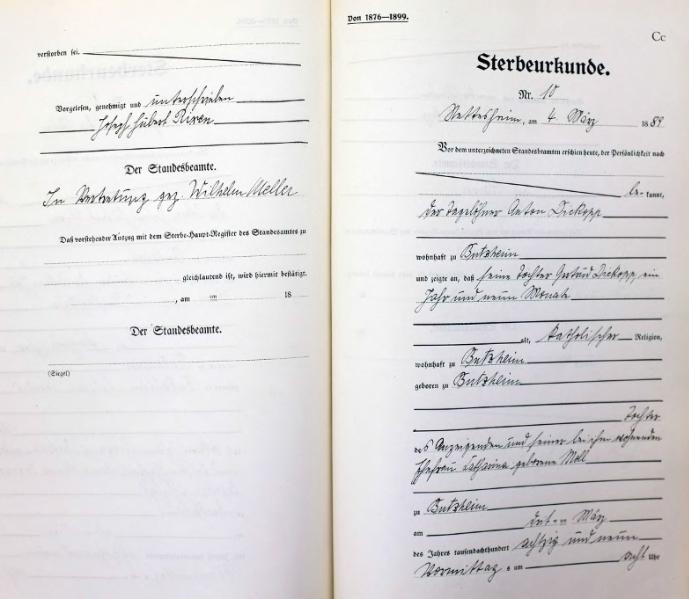 verstorben sei.
Vorgelesen, genehmigt und unterschrieben
Joseph Hubert Rixen
Der Standesbeamte.
In Vertretung gez. Wilhelm Meller
Daß vorstehender Auszug mit dem Sterb-Haupt-Register des Standesamtes zu
gleichlautend ist, wird hiermit bestätigt.
, am ten 18
Der Standesbeamte.
(Siegel)
Von 1876—1899.
Cc
Sterbeurkunde.
Nr. 10
Nettesheim, am 4 März 1889
Vor dem unterzeichneten Standesbeamten erschien heute, der Persönlichkeit nach
be- kannt,
der Tagelöhner Anton Dickopp
wohnhaft zu Butzheim
und zeigte an, daß seine Tochter Gertrud Dickopp, ein
Jahr und neun Monate
alt, katholischer Religion,
wohnhaft zu Butzheim
geboren zu Butzheim
Tochter
des Anzeigenden und seiner bei ihm wohnenden
Ehefrau Catharina geborene Moll
zu Butzheim
am März
des Jahres tausendachthundert achtzig und neun
Vormittags um acht Uhr